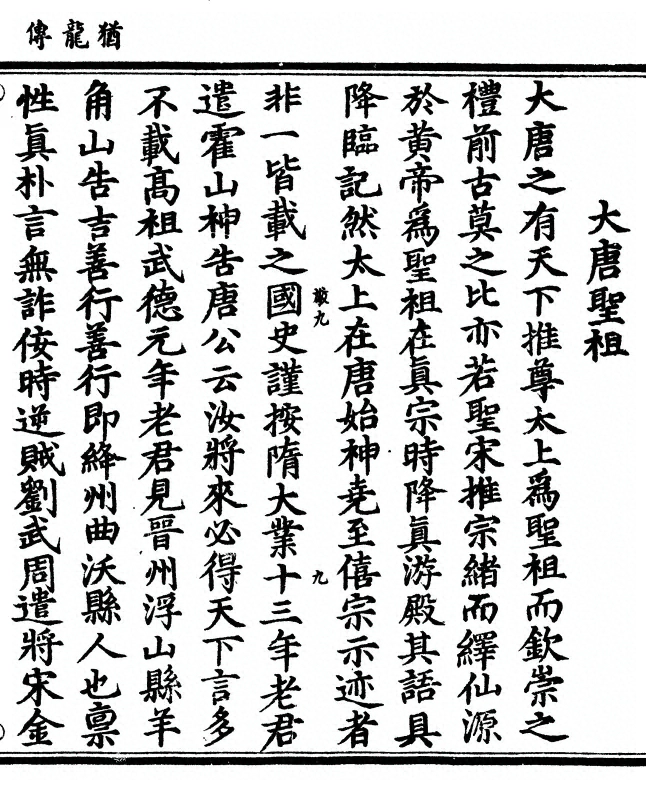 猶龍傳
大唐聖祖
大唐之有天下推尊太上爲聖祖而欽崇之
禮前古莫之比亦若聖宋推宗緒而繹仙源
於黃帝爲聖祖在眞宗時降眞游殿其語具
降臨記然太上在唐始神堯至僖宗示迹者
非一皆載之國史謹按隋大業十三年老君
敬九
九
遣霍山神告唐公云汝將來必得天下言多
不載高祖武德元年老君見晉州浮山縣羊
角山告吉善行善行即絳州曲沃縣人也稟
性眞朴言無詐侫時逆賊劉武周遣將宋金